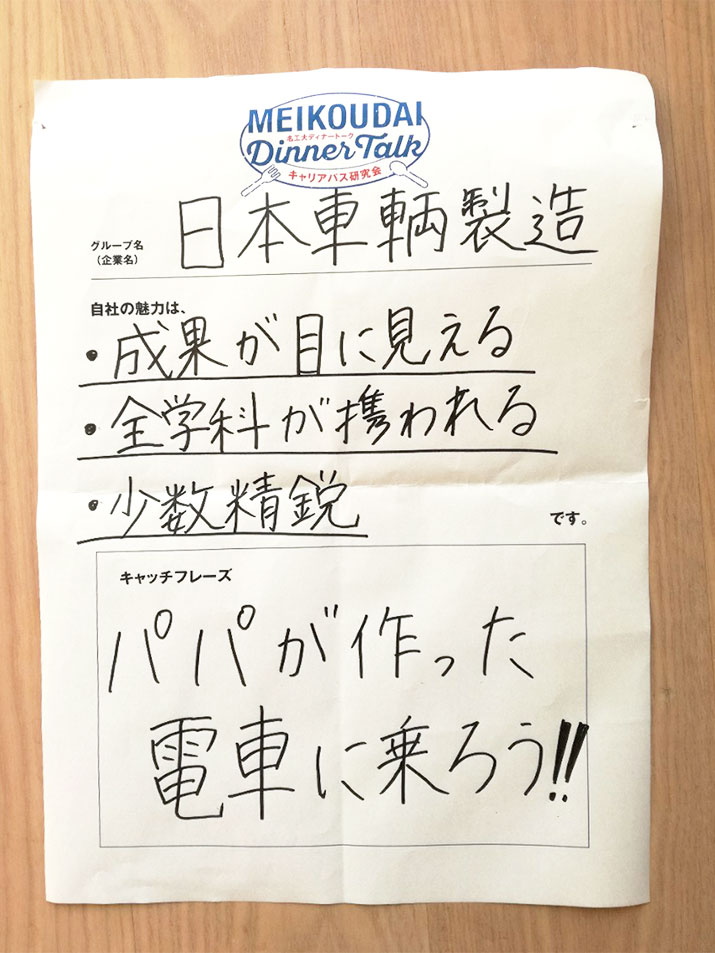 MEIKOUDAI
名工大ディナートーク
Dinner Talk
キャリアパス研究会
グループ名
（企業名）
日本車輌製造
自社の魅力は、
・成果が目に見える
・全学科が携われる
・少数精鋭
です。
キャッチフレーズ
パパが作った
電車に乗ろう!!